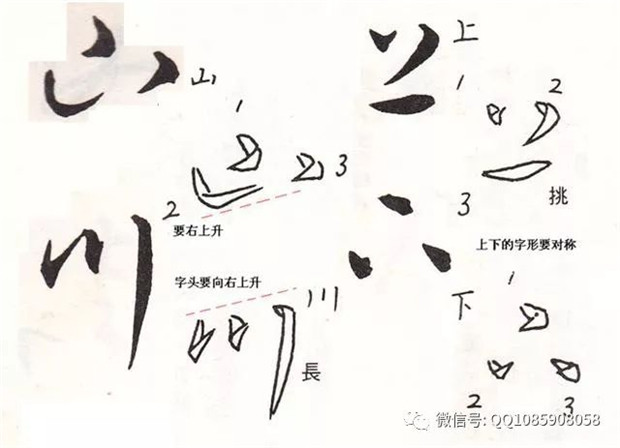 山 山
1
3
2
要右上升
上 上
1
2
3
挑
上下的字形要对称
川 川
字头要向右上升
長
下 下
1
2
3
微信号: QQ1085908058